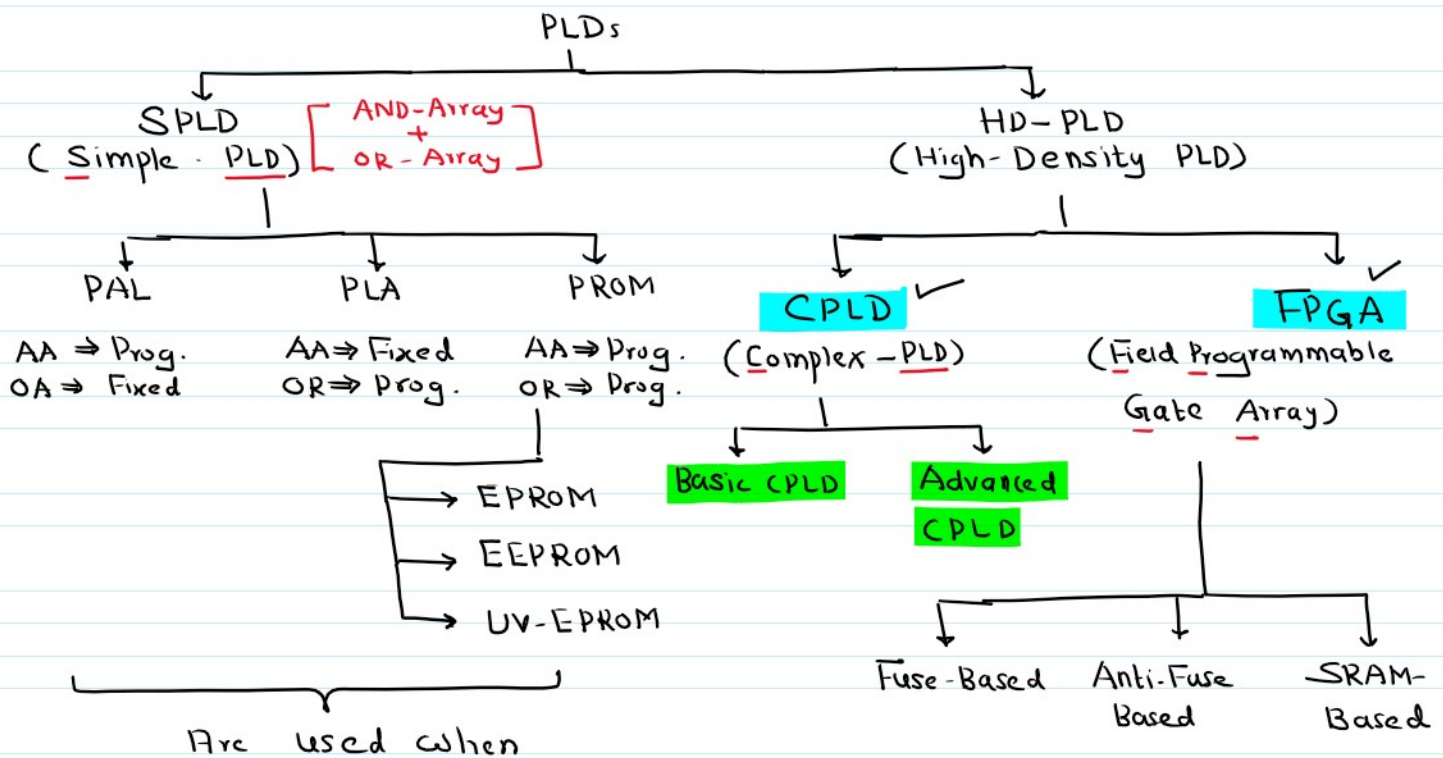 PLDs
SPLD
(Simple . PLD)
AND-Array
+
OR-Array
HD-PLD
(High-Density PLD)
PAL
AA ⇒ Prog.
OA ⇒ Fixed
PLA
AA ⇒ Fixed
OR ⇒ Prog.
PROM
AA ⇒ Prog.
OR ⇒ Prog.
EPROM
EEPROM
UV-EPROM
Are used when
CPLD
(Complex-PLD)
Basic CPLD
Advanced
CPLD
FPGA
(Field Programmable
Gate Array)
Fuse-Based
Anti-Fuse
Based
SRAM-
Based